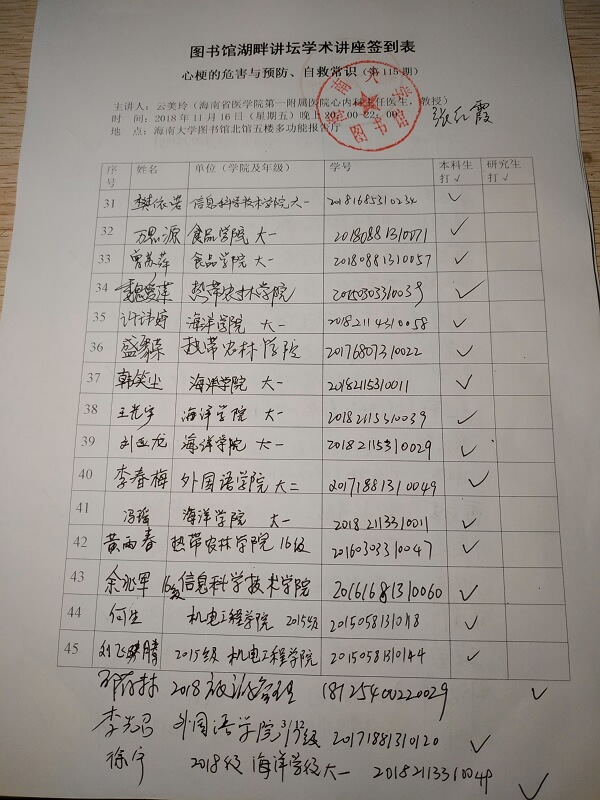 图书馆湖畔讲坛学术讲座签到表
心梗的危害与预防、自救常识（第115期）
主讲人：云美玲（海南省医学院第一附属医院心内科主任医生，教授）
时 间：2018年11月16日（星期五）晚上20：00-22：00
张红霞
地 点：海南大学图书馆北馆五楼多功能报告厅
序号 姓名 单位（学院及年级） 学号 本科生打√ 研究生打√
31 樊依诺 信息科学技术学院大一 20181685310234 √
32 万思源 食品学院 大一 20180881310071 √
33 曾苏萍 食品学院 大一 20180881310057 √
34 魏爱莲 热带农林学院 20150303310039 √
35 许玮婷 海洋学院 大一 20182114310058 √
36 盛家荣 热带农林学院 20176807310022 √
37 韩笑尘 海洋学院 大一 20182115310011 √
38 王光宇 海洋学院 大一 20182115310039 √
39 刘亚龙 海洋学院 大一 20182115310029 √
40 李春梅 外国语学院 大二 20171881310049 √
41 冯瑶 海洋学院 大一 20182113310011 √
42 黄雨春 热带农林学院16级 20160303310047 √
43 余兆军 16级 信息科学技术学院 20161681310060 √
44 何生 机电工程学院 2015级 20150581310118 √
45 刘飞腾 2015级 机电工程学院 20150581310144 √
2018 旅游管理 18125400220029 √
李光召 外国语学院 17级 20171881310120 √
徐宁 2018级 海洋学院大一 20182113310049 √